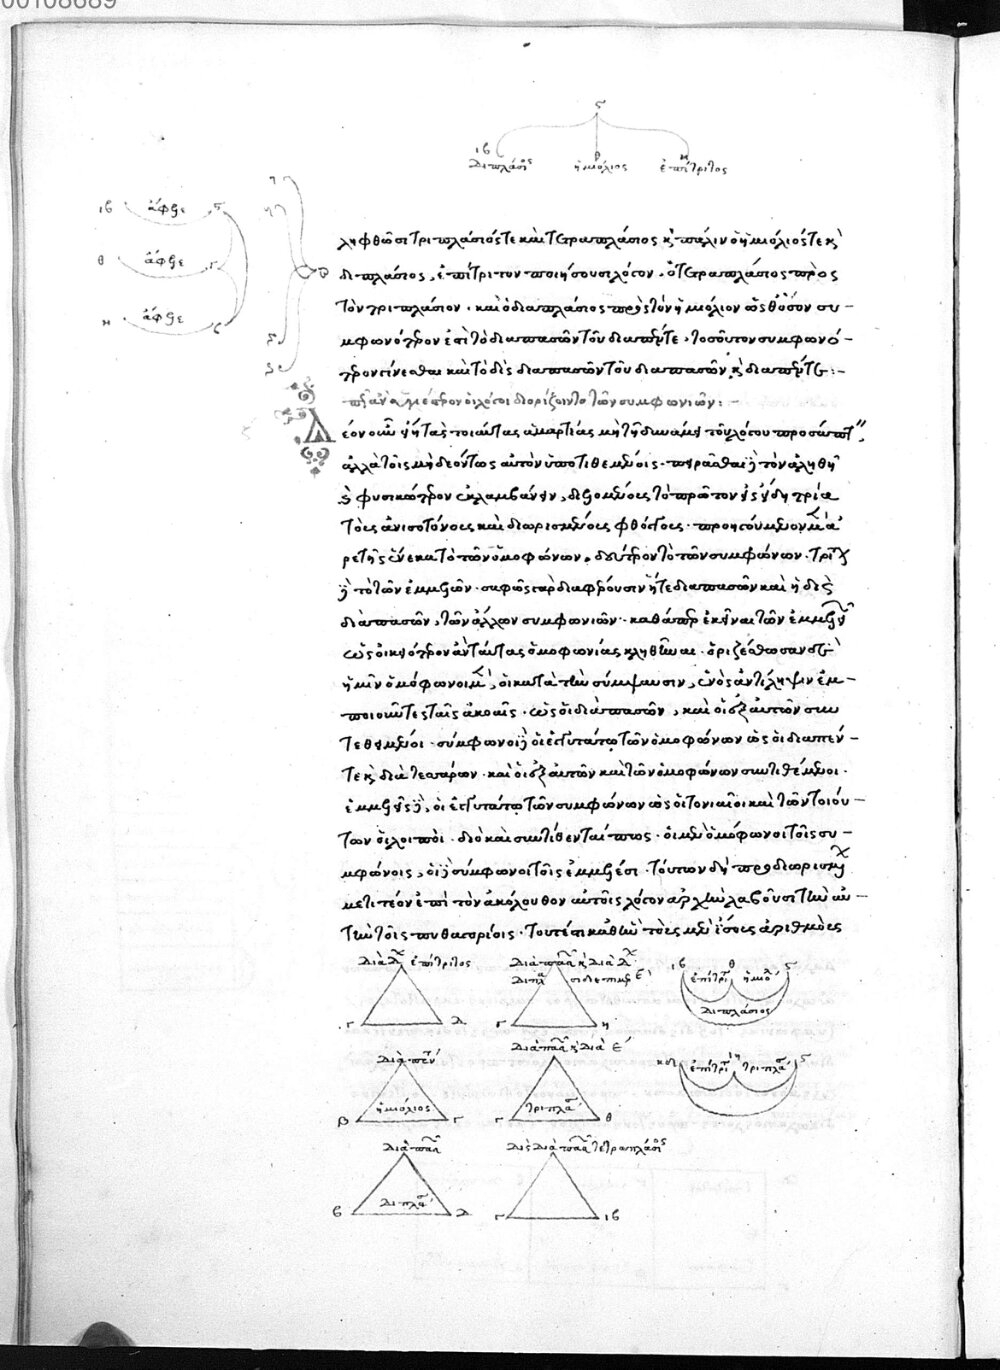 00108689
ϛ
ιβ θ η
διπλάσιος ἡμιόλιος ἐπίτριτος
ιβ ἄφθε ϛ
θ ἄφθε γ
η ἄφθε ϛ
ληφθῶσι τριπλάσιός τε καὶ τετραπλάσιος κ πάλιν ὁ ἡμιόλιός τε κ
διπλάσιος, ἐπίτριτον ποιήσουσι λόγον. ὁ τετραπλάσιος πρὸς
τὸν τριπλάσιον. καὶ ὁ διπλάσιος πρὸς τὸν ἡμιόλιον ὡς θ ὅσον συ–
μφωνότερον ἐστὶ τὸ διαπασῶν τοῦ διαπέντε, τοσοῦτον συμφωνό–
τερον γίνεσθαι καὶ τὸ δὶς διαπασῶν τοῦ διαπασῶν κ διαπέντε:–
πῶς ἂν ὑγιέστερον οἱ λόγοι διορίζοιντο τῶν συμφωνιῶν:–
Δέον οὖν ἡ τὰς τοιαύτας ἁμαρτίας μὴ τῇ δυνάμει τοῦ λόγου προσάπτειν,
ἀλλὰ τοῖς μὴ δεόντως αὐτὸν ὑποτιθεμένοις. πειρᾶσθαι δὲ τὸν ἀληθῆ
κ φυσικώτερον ἐκλαμβάνειν, διελομένους τὸ πρῶτον εἰς εἴδη τρία
τοὺς ἀνισοτόνους καὶ διωρισμένους φθόγγους. προηγούμενον μὲν ἀ
ρετῆς ἕνεκα τὸ τῶν ὁμοφώνων, δεύτερον τὸ τῶν συμφώνων. τρίτον
δὲ τὸ τῶν ἐμμελῶν. σαφῶς γὰρ διαφέρουσιν ἥ τε διαπασῶν καὶ ἡ δὶς
διαπασῶν, τῶν ἄλλων συμφωνιῶν. καθάπερ ἐκεῖναι τῶν ἐμμελῶν
ὡς οἰκειότερον ἂν ταύτας ὁμοφωνίας κληθῆναι. ὁριζέσθωσαν δὲ
ἡμῖν ὁμόφωνοι μέν, οἱ κατὰ τὴν σύμψαυσιν, ἑνὸς ἀντίληψιν ἐμ–
ποιοῦντες ταῖς ἀκοαῖς. ὡς οἱ διαπασῶν, καὶ οἱ ἐξ αὐτῶν συν
τεθειμένοι. σύμφωνοι δὲ οἱ ἐγγυτάτω τῶν ὁμοφώνων ὡς οἱ διαπέν–
τε κ διατεσσάρων. καὶ οἱ ἐξ αὐτῶν καὶ τῶν ὁμοφώνων συντιθέμενοι.
ἐμμελεῖς δέ, οἱ ἐγγυτάτω τῶν συμφώνων ὡς οἱ τονιαῖοι καὶ τῶν τοιού–
των οἱ λοιποί. διὸ καὶ συντίθενταί πως. οἱ μὲν ὁμόφωνοι τοῖς συ–
μφώνοις, οἱ δὲ σύμφωνοι τοῖς ἐμμελέσι. τούτων δὴ προδιωρισμένων
μετιτέον ἐπὶ τὸν ἀκόλουθον αὐτοῖς λόγον ἀρχὴν λαβοῦσι τὴν αὐ–
τὴν τοῖς πυθαγορίοις. τουτέστι καθ ἣν τοὺς μὲν ἴσους ἀριθμοὺς
διὰ δ ἐπίτριτος
γ δ
διὰ πασῶν κ διὰ δ
γ η
ιβ θ ϛ
ἐπίτρι ἡμιό
διπλάσιος
διὰ πέν
ἡμιόλιος
β γ
διὰ πασῶν κ διὰ ε
τριπλά
γ θ
κδ η ϛ
ἐπίτρι τριπλά
διὰ πασῶν
διπλά
β δ
δὶς διὰ πασῶν τετραπλάσιος
γ ιβ